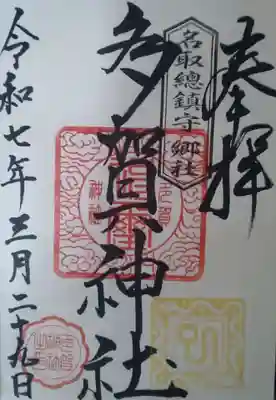 奉拝
名取總鎮守 郷社
多賀神社
令和七年三月二十九日